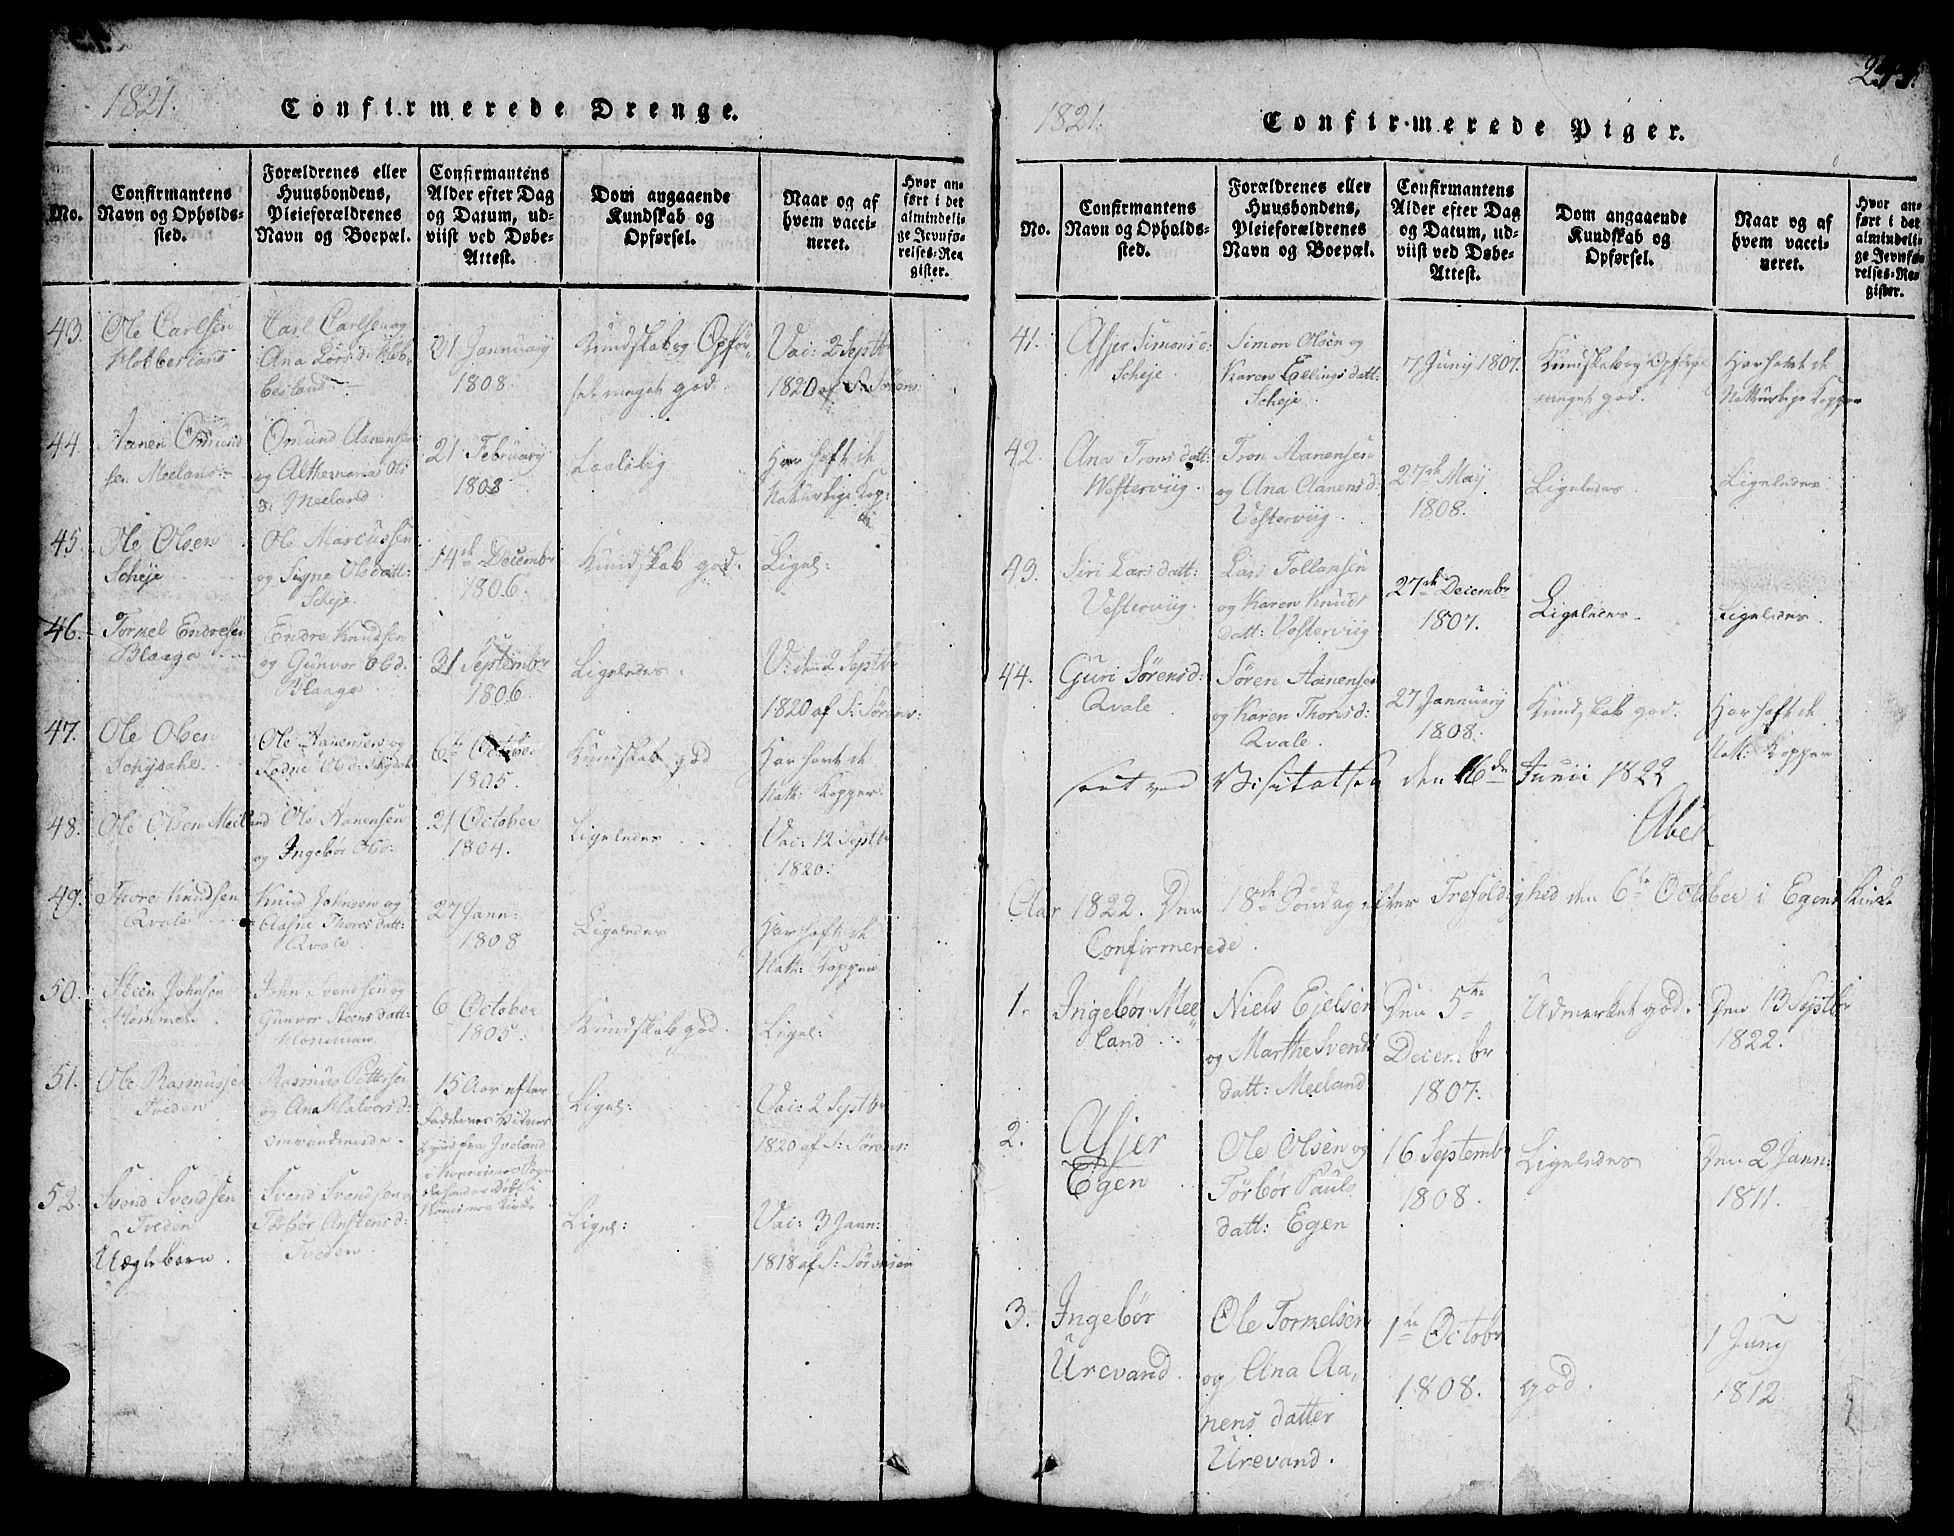 1821.
Confirmerede Drenge.
No.
Confirmantens
Navn og Opholds-
sted.
Forældrenes eller
Huusbondens,
Pleieforældrenes
Navn og Boepæl.
Confirmantens
Alder efter Dag
og Datum, ud-
viist ved Døbe-
Attest.
Dom angaaende
Kundskab og
Opførsel.
Naar og af
hvem vacci-
neret.
Hvor an-
ført i det
almindeli-
ge Jevnfø-
relses-Re-
gister.
43.
Ole Carlsen
Klobbesland
Carl Carlsen og
Ana Larsd: Klob-
besland
21 Januarij
1808.
Kundskab og Opfør-
sel meget god.
Vai: 2 Septbr
1820 af S: Sørens:
44.
Aanen Osmund
sen Meeland
Omund Aanensen
og Althemaria Ols
d: Meeland
21 Februarij
1808
Laalelig
Har haft de
Naturlige Kop:
45.
Ole Olsen
Scheje
Ole Marcussen
og Signe Olsdatt:
Scheje.
14de Decembr
1806.
Kundskab god.
Ligel:
46.
Tormel Endresen
Blaaga
Endre Knudsen
og Gunvor Olsd.
Blaaga
21 Septembr
1806.
Ligeledes.
V: den 2 Septbr
1820 af S: Sørens:
47.
Ole Olsen
Ole Aanensen og
6te October
1805.
Kundskab god
Har havt de
Nath: Kopper
48.
Ole Olsen Meeland
Ole Aanensen
og Ingebør Olsd:
21 October
1804.
Ligeledes
Vai: 12 Septbr
1820.
49.
Thore Knudsen
Qvale
Knud Johnsen og
Aasne Thoresdatt:
Qvale
27 Jann:
1808
Ligeledes
Har haft de
Nath: Kopper
50.
Steen Johnsen
Hommen
John Svendsen og
Gunvor Steensdatt:
Hommen
6 October
1805.
Kundskab god.
Ligel:
51.
Ole Rasmussen
Tveden
Rasmus Pettersen
og Ana Halvorsd:
omvandrende.
15 Aar efter
Faddernes Vidnes
byrd fra Iveland
Ligel:
Vai: 2 Septbr
1820 af S: Sørens:
52.
Svend Svendsen
Tveden
Uægtebarn.
Svend Svendsen og
Torbør Anstensd:
Tveden
Ligel:
Vai: 3 Jann:
1818 af S: Sørensen
1821.
Confirmerede Piger.
No.
Confirmantens
Navn og Opholds-
sted.
Forældrenes eller
Huusbondens,
Pleieforældrenes
Navn og Boepæl.
Confirmantens
Alder efter Dag
og Datum, ud-
viist ved Døbe-
Attest.
Dom angaaende
Kundskab og
Opførsel.
Naar og af
hvem vacci-
neret.
Hvor an-
ført i det
almindeli-
ge Jevnfø-
relses-Re-
gister.
41.
Asjer Simonsd:
Scheje
Simon Olsen og
Karen Ellingsdatt:
Scheje
7 Junij 1807.
Kundskab og Opførsel
meget god.
Har havt de
Natturlige Kopper
42.
Ana Tronsdatt:
Westerviig.
Tron Aanensen
og Ana Aanensd:
Vesterviig
27de May
1808.
Ligeledes.
Ligeledes
43.
Siri Larsdatt:
Vesterviig.
Lars Tollapsen
og Karen Knuds
datt: Vesterviig
27de Decembr
1807.
Ligeledes.
Ligeledes
44.
Guri Sørensd:
Qvale
Søren Aanensen
og Karen Thoresd:
Qvale.
27 Januarij
1808.
Kundskab god.
Har haft de
Nath: Kopper
seet ved Visitatsen den 16de Junii 1822
Abel
Aar 1822. Den 18de Søndag efter Trefoldighed den 6te October i Egens Kirke
Confirmerede.
1.
Ingebør Mee-
land
Niels Ejelsen
og Marthe Svends
datt: Meeland
Den 5te
Decembr
1807.
Udmerket god.
Den 13 Septbr
1822.
2.
Asjer
Egen
Ole Olsen og
Torbør Pauls
datt: Egen
16 Septembr
1808.
Ligeledes
Den 2 Jann:
1811.
3.
Ingebør
Urevand
Ole Tormelsen
og Ana Aa-
nens datter
Urevand.
1te Octobr
1808.
god.
1 Juny
1812